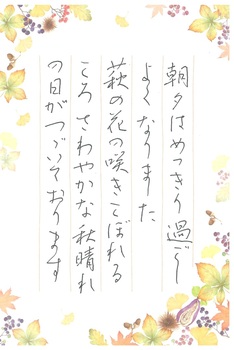 朝夕はめっきり過ごし
よくなりました
萩の花の咲きこぼれる
ころさわやかな秋晴れ
の日がつづいております